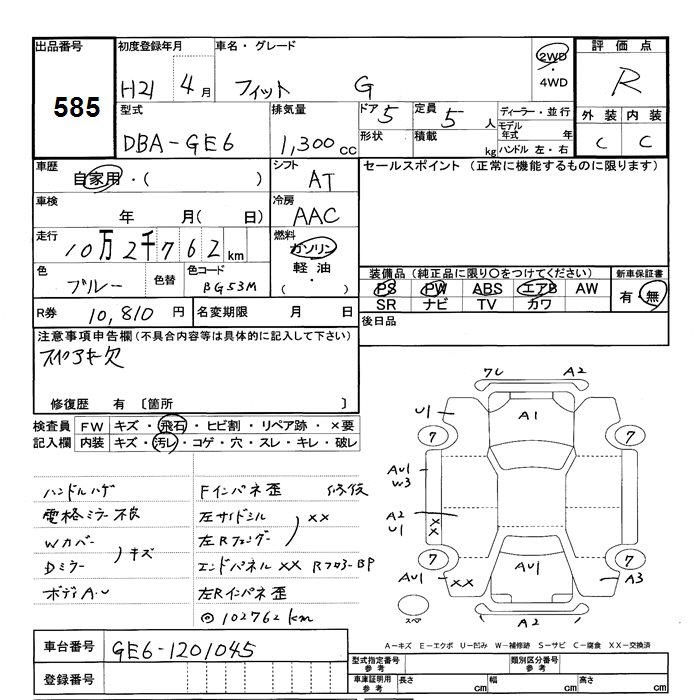 出品番号 初度登録年月 車名・グレード 2WD ・ 4WD 評価点
585 H21 4月 フィット G R
型式 排気量 ドア 5 定員 5人 ディーラー・並行 外装 内装
DBA-GE6 1,300cc 形状 積載 kg モデル年式 年 ハンドル 左・右 C C
車歴 自家用・( ) シフト AT セールスポイント (正常に機能するものに限ります)
車検 年 月( 日) 冷房 AAC
走行 10万2千762km 燃料 ガソリン 軽油 ( ・ )
色 ブルー 色替 色コード BG53M 装備品(純正品に限り○をつけてください) 新車保証書
PS PW ABS エアB AW 有・無
SR ナビ TV カワ
R券 10,810円 名変期限 月 日 後日品
注意事項申告欄(不具合内容等は具体的に記入して下さい)
スペアキ欠
修復歴 有 〔箇所 〕
検査員 FW キズ・飛石・ヒビ割・リペア跡・×要
記入欄 内装 キズ・汚レ・コゲ・穴・スレ・キレ・破レ
ハンドルハゲ Fインパネ歪 修仮
電格ミラー不良 左サイドシル
Wカバー 左Rフェンダー ) XX
Dミラー ) キズ エンドパネルXX RフロアーBP
ボディA・U 左Rインパネ歪
◎102762km
7U A2
U1 A1
7 7
AU1
W3
A2
U1 XX
7 7
AU1 XX AU1 A3
スペア A2
A-キズ E-エクボ U-凹み W-補修跡 S-サビ C-腐食 XX-交換済
車台番号 GE6-1201045
登録番号
型式指定番号 参考 類別区分番号 参考
車庫証明用 参考 長さ cm 幅 cm 高さ cm